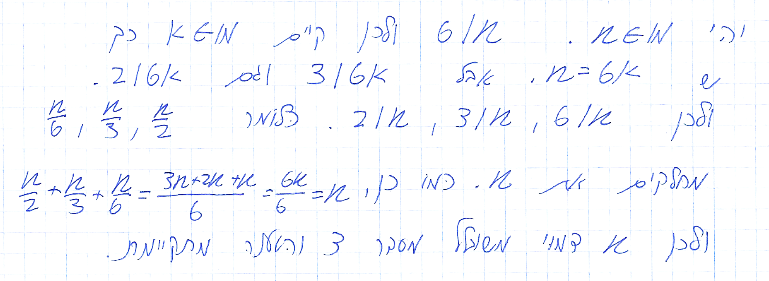 יהי n∈ℕ. 6|n ולכן קיים k∈ℕ כך
ש n=6k. אבל 3|6k וגם 2|6k.
ולכן 2|n, 3|n, 6|n. כלומר n/2, n/3, n/6
מחלקים את n. כמו כן, n/2+n/3+n/6=(3n+2n+n)/6=6n/6=n
ולכן n דמוי משוכלל מסדר 3 והטענה מתקיימת.